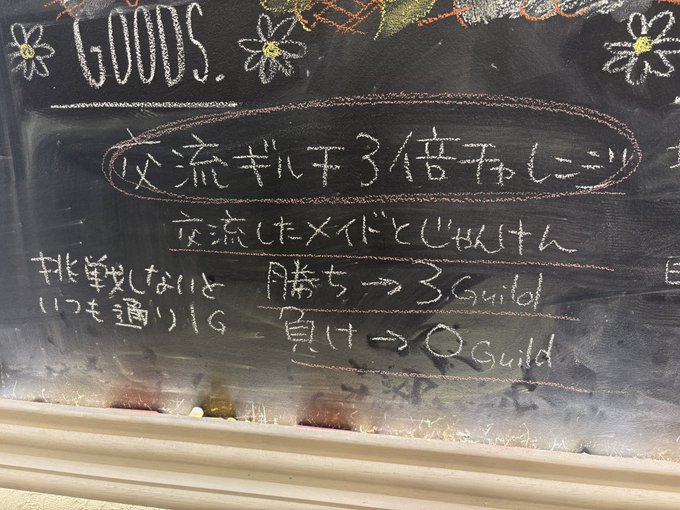 GOODS.
交流ギルド3倍チャレンジ
交流したメイドとじゃんけん
勝ち→3.Guild
負け→0 Guild
挑戦しないと
いつも通り1G